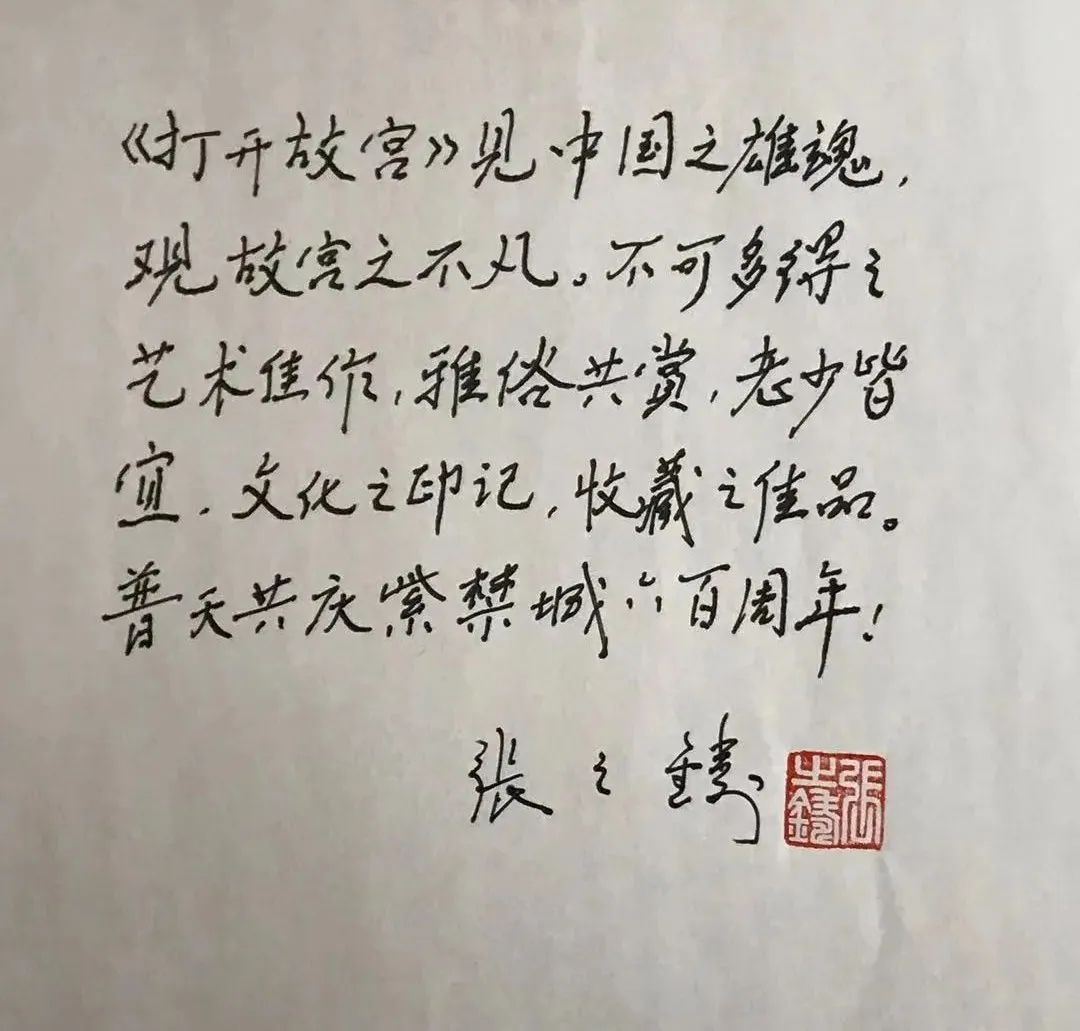 《打开故宫》见中国之雄魂，
观故宫之不凡。不可多得之
艺术佳作，雅俗共赏，老少皆
宜．文化之印记，收藏之佳品。
普天共庆紫禁城六百周年！
張之鑄
張之鑄